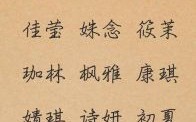 佳莹 姝念 筱茉
珈林 枫雅 康琪
婧琪 诗妍 初夏